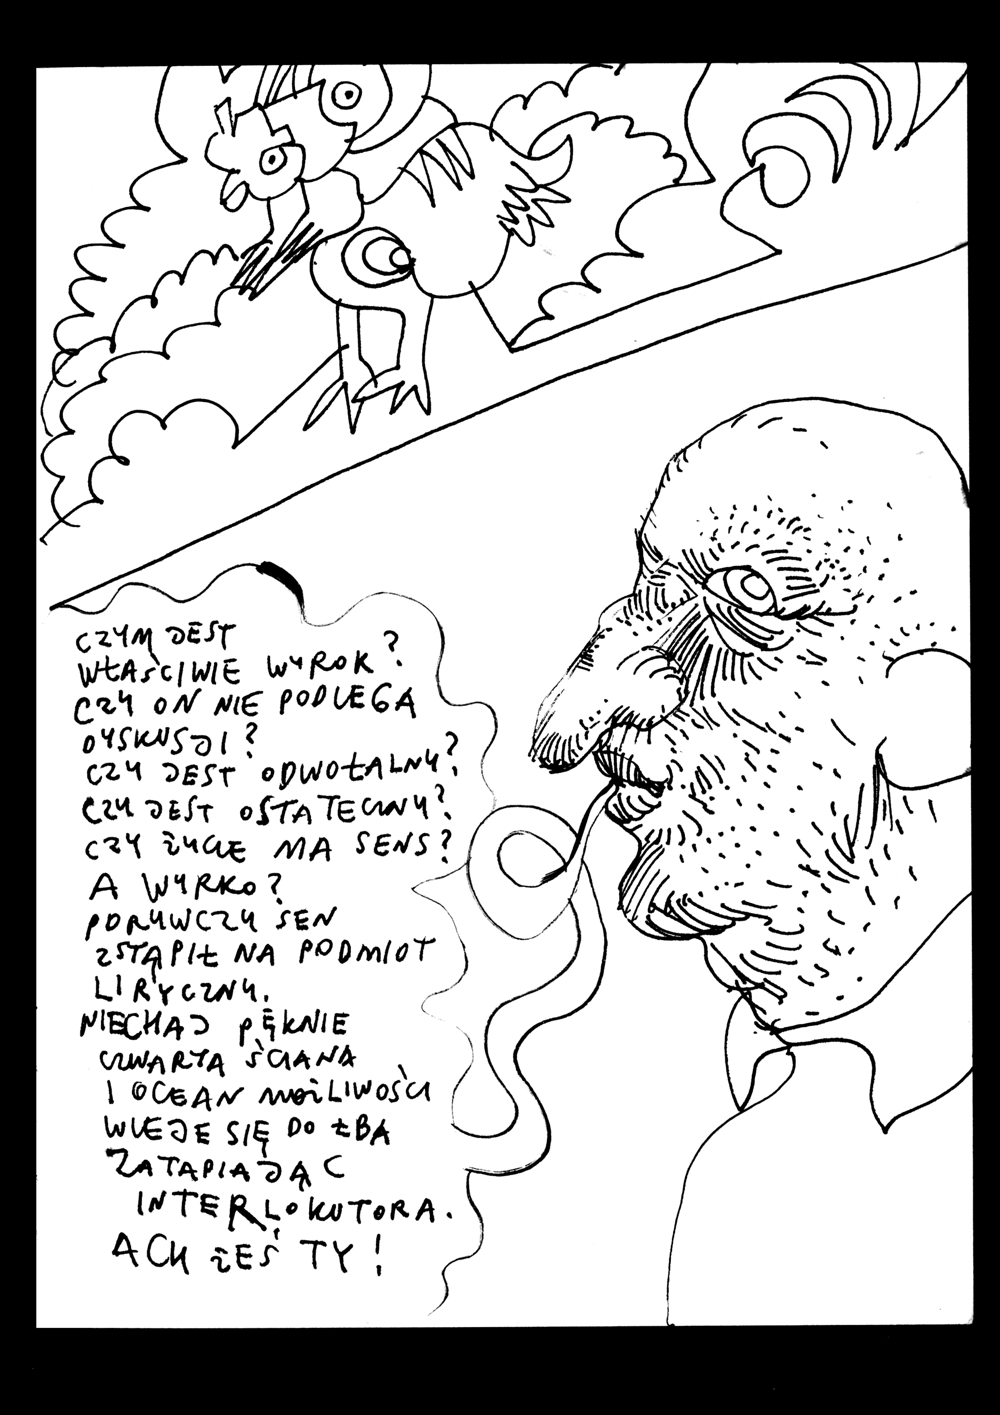 CZYM JEST
WŁAŚCIWIE WYROK?
CZY ON NIE PODLEGA
DYSKUSJI?
CZY JEST ODWOŁALNY?
CZY JEST OSTATECZNY?
CZY ŻYCIE MA SENS?
A WYRKO?
PORYWCZY SEN
ZSTĄPIŁ NA PODMIOT
LIRYCZNY.
NIECHAJ PĘKNIE
CZWARTA ŚCIANA
I OCEAN MOŻLIWOŚCI
WLEJE SIĘ DO ŁBA
ZATAPIAJĄC
INTERLOKUTORA.
ACH ŻEŚ TY!